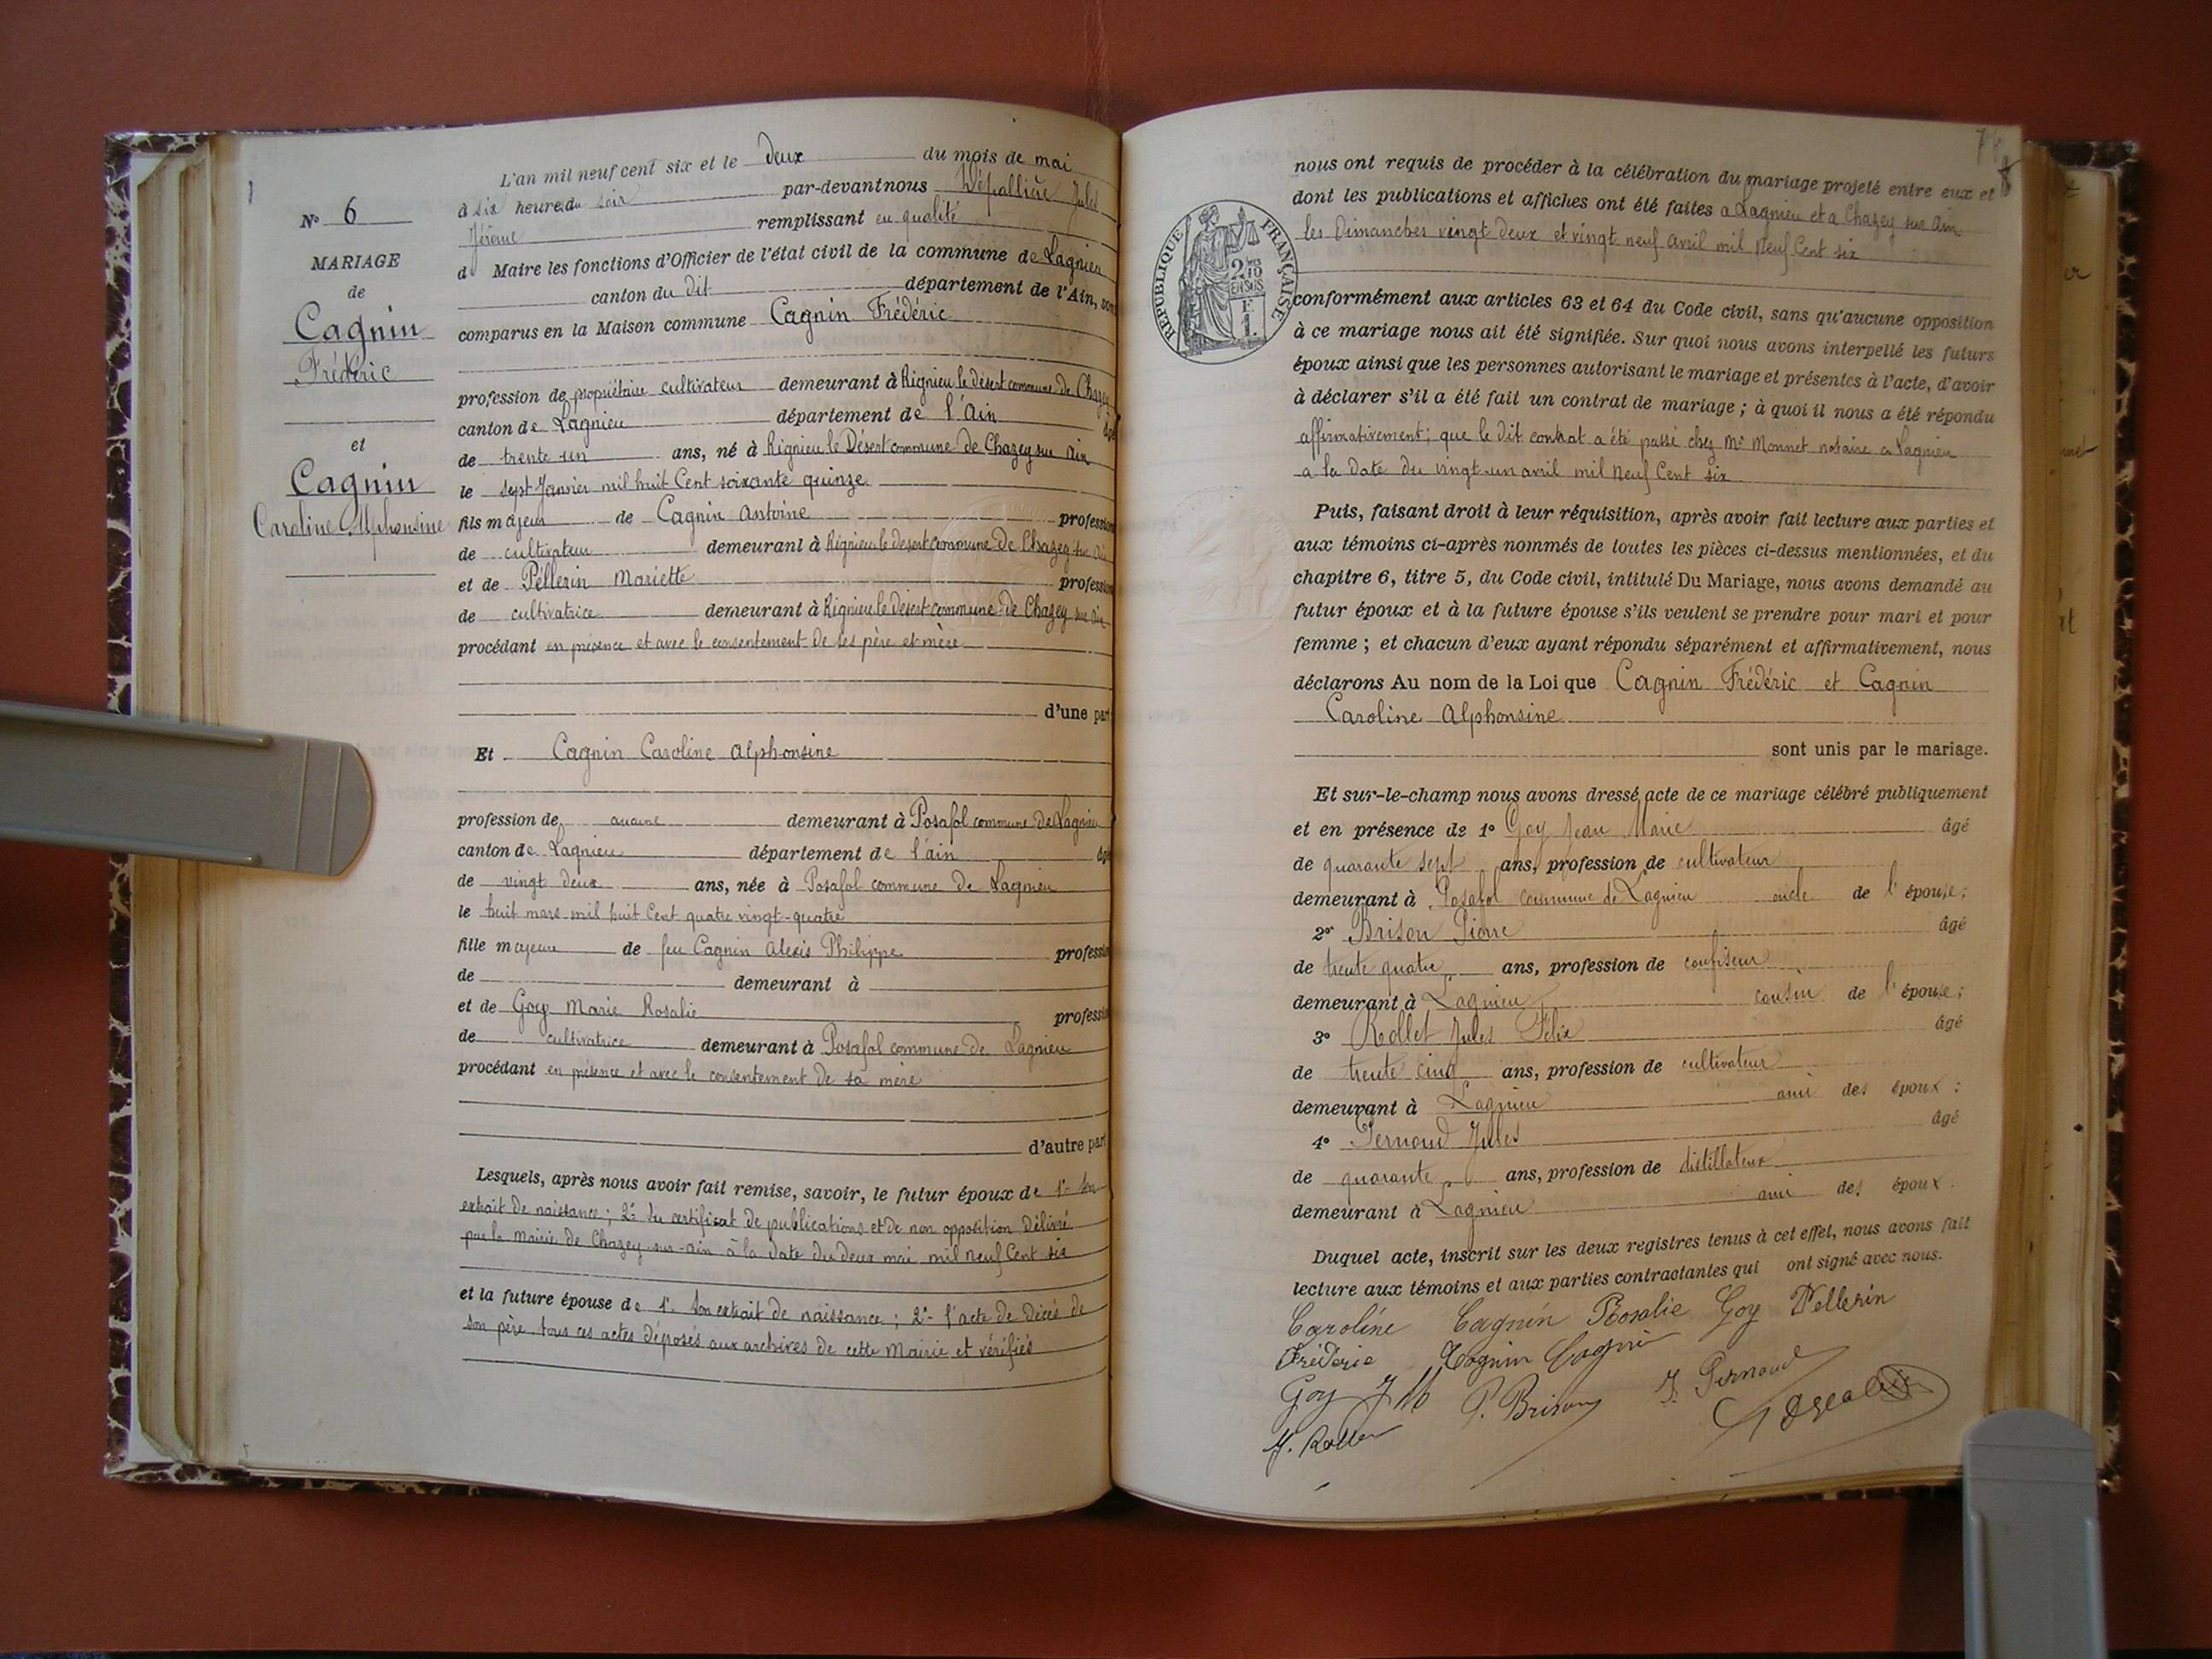 L'an mil neuf cent six et le deux du mois de mai
à six heures du soir par-devant nous Dépallière Jules
Jérôme remplissant en qualité
d Maire les fonctions d'Officier de l'état civil de la commune de Lagnieu
canton du dit département de l'Ain, sont
comparus en la Maison commune Cagnin Frédéric
profession de propriétaire cultivateur demeurant à Rignieu le désert commune de Chazey
canton de Lagnieu département de l'Ain âgé
de trente un ans, né à Rignieu le Désert commune de Chazey sur Ain
le sept Janvier mil huit Cent soixante quinze
fils majeur de Cagnin Antoine profession
de cultivateur demeurant à Rignieu le désert commune de Chazey sur Ain
et de Pellerin Mariette profession
de cultivatrice demeurant à Rignieu le désert commune de Chazey sur Ain
procédant en présence et avec le consentement de ses père et mère
d'une part
Et Cagnin Caroline Alphonsine
profession de aucune demeurant à Posafol commune de Lagnieu
canton de Lagnieu département de l'ain âgé
de vingt deux ans, née à Posafol commune de Lagnieu
le huit mars mil huit Cent quatre vingt-quatre
fille majeure de feu Cagnin Alexis Philippe profession
de demeurant à
et de Goy Marie Rosalie profession
de cultivatrice demeurant à Posafol commune de Lagnieu
procédant en présence et avec le consentement de sa mère
d'autre part
Lesquels, après nous avoir fait remise, savoir, le futur époux de 1° Son
extrait de naissance; 2° du certificat de publications et de non opposition délivré
par la Mairie de Chazey-sur-ain à la date du deux mai mil neuf Cent six
et la future épouse de 1° Son extrait de naissance; 2° l'acte de décès de
son père tous ces actes déposés aux archives de cette Mairie et vérifiés
N° 6
MARIAGE
de
Cagnin
Frédéric
et
Cagnin
Caroline Alphonsine
nous ont requis de procéder à la célébration du mariage projeté entre eux et
dont les publications et affiches ont été faites a Lagnieu et a Chazey sur Ain
les Dimanches vingt deux et vingt neuf avril mil neuf Cent six
RÉPUBLIQUE FRANÇAISE
2/10
EN SUS
1 F.
conformément aux articles 63 et 64 du Code civil, sans qu'aucune opposition
à ce mariage nous ait été signifiée. Sur quoi nous avons interpellé les futurs
époux ainsi que les personnes autorisant le mariage et présentes à l'acte, d'avoir
à déclarer s'il a été fait un contrat de mariage; à quoi il nous a été répondu
affirmativement; que le dit contrat a été passé chez Me Monnet notaire a Lagnieu
a la date du vingt-un avril mil neuf Cent six
Puis, faisant droit à leur réquisition, après avoir fait lecture aux parties et
aux témoins ci-après nommés de toutes les pièces ci-dessus mentionnées, et du
chapitre 6, titre 5, du Code civil, intitulé Du Mariage, nous avons demandé au
futur époux et à la future épouse s'ils veulent se prendre pour mari et pour
femme; et chacun d'eux ayant répondu séparément et affirmativement, nous
déclarons Au nom de la Loi que Cagnin Frédéric et Cagnin
Caroline Alphonsine
sont unis par le mariage.
Et sur-le-champ nous avons dressé acte de ce mariage célébré publiquement
et en présence de 1° Goy Jean Marie âgé
de quarante sept ans, profession de cultivateur
demeurant à Posafol commune de Lagnieu oncle de l'épouse;
2° Brison Pierre âgé
de trente quatre ans, profession de confiseur
demeurant à Lagnieu cousin de l'épouse;
3° Rollet Jules Félix âgé
de trente cinq ans, profession de cultivateur
demeurant à Lagnieu ami des époux:
4° Pernoud Jules âgé
de quarante ans, profession de distillateur
demeurant à Lagnieu ami des époux.
Duquel acte, inscrit sur les deux registres tenus à cet effet, nous avons fait
lecture aux témoins et aux parties contractantes qui ont signé avec nous.
Caroline Cagnin Rosalie Goy Pellerin
Frédéric Cagnin Cagnin
Goy J M P. Brison J. Pernoud
J. Rollet